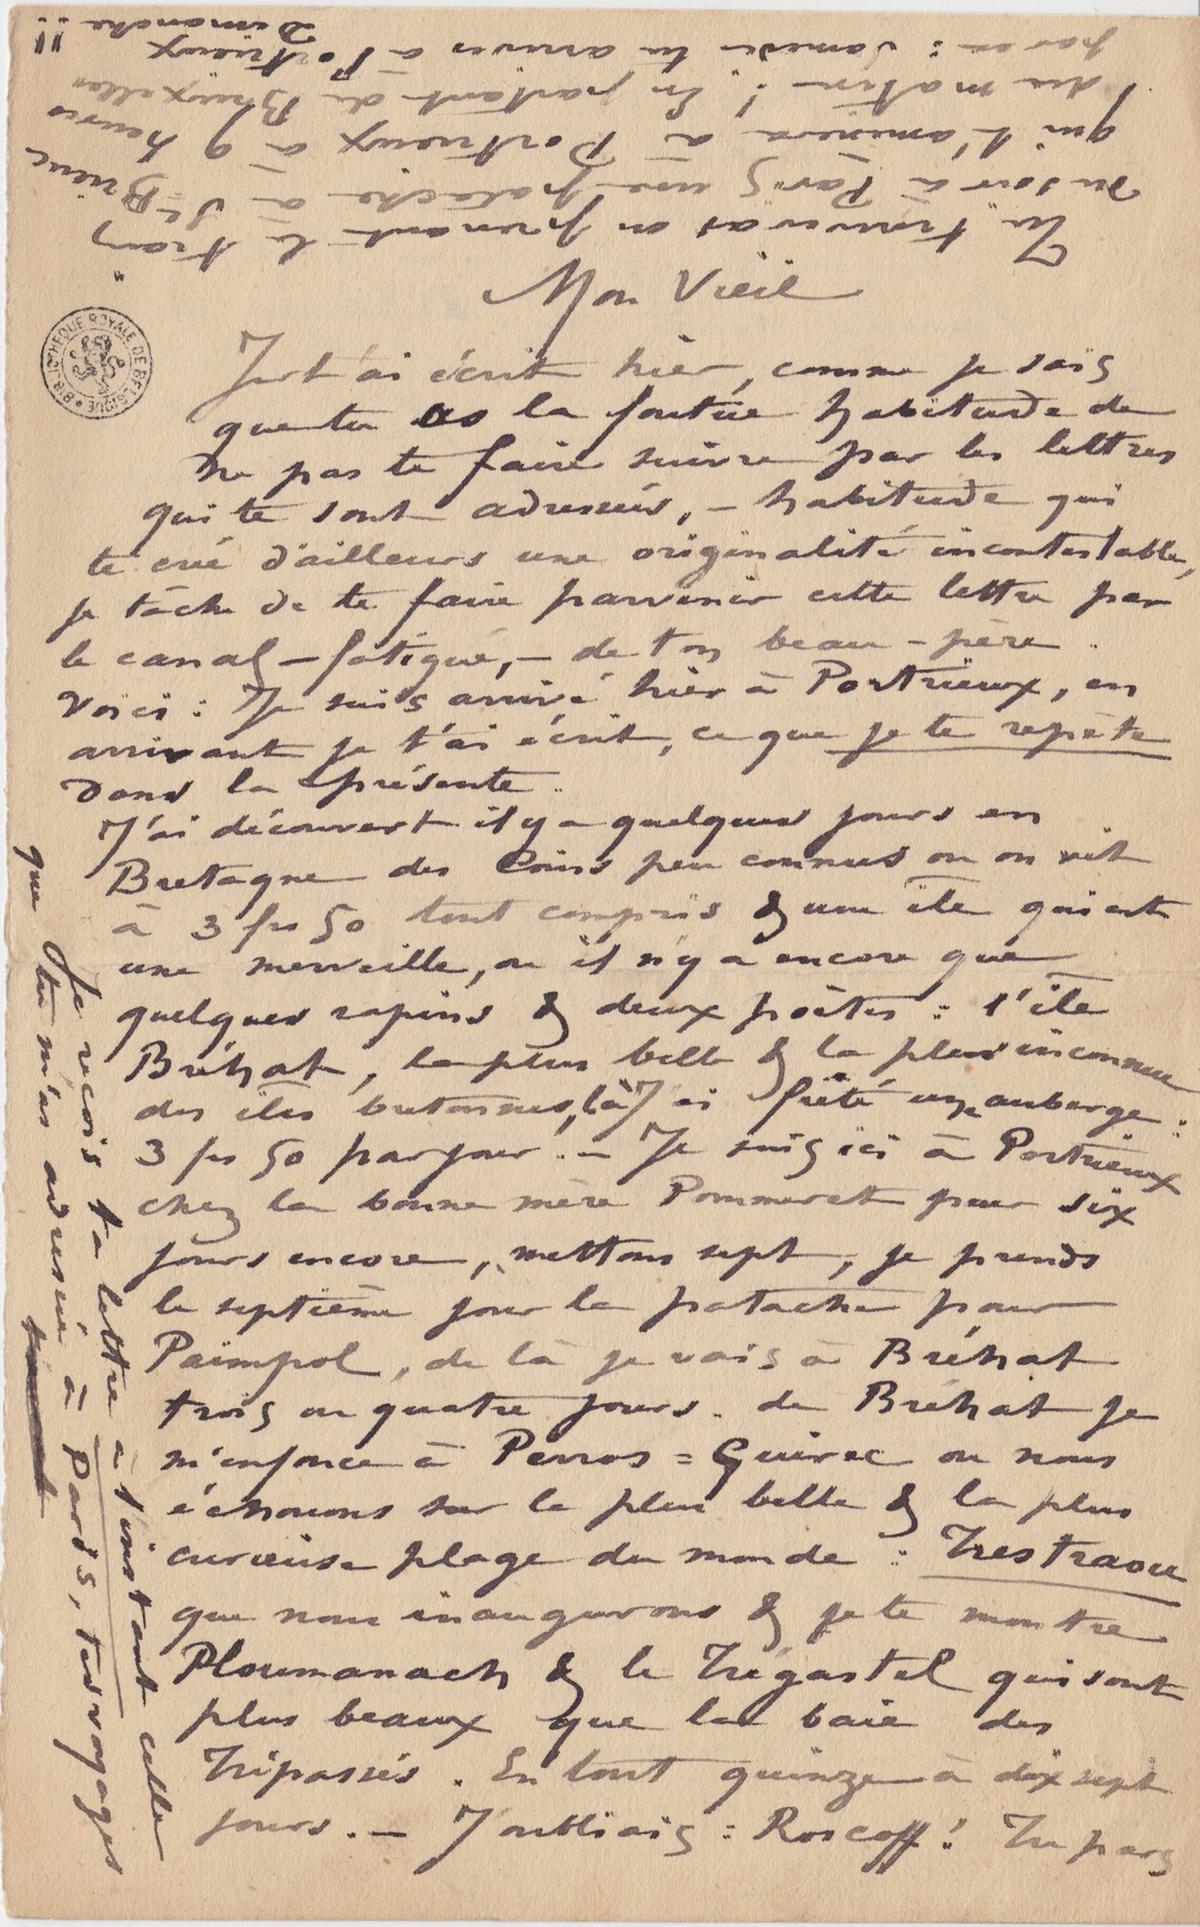 Mon Vieil
Je t'ai écrit hier, comme je sais
que tu as la foutue habitude de
ne pas te faire suivre par les lettres
qui te sont adressées, – habitude qui
te crée d'ailleurs une originalité incontestable,
je tâche de te faire parvenir cette lettre par
le canal – fatigué, – de ton beau-père.
Voici : Je suis arrivé hier à Portrieux, en
arrivant je t'ai écrit, ce que je te repète
dans la présente.
J'ai découvert il y a quelques jours en
Bretagne des Coins peu connus ou on vit
à 3 frs 50 tout compris & une île qui est
une merveille, ou il n'y a encore que
quelques rapins & deux poètes : l'île
Bréhat, la plus belle & la plus inconnue
des îles bretonnes, là J'ai frêté une auberge :
3 frs 50 par jour. – Je suis ici à Portrieux
chez la bonne mère Pommeret pour six
jours encore, mettons sept, je prends
le septième jour la patache pour
Paimpol, de là je vais à Bréhat
trois ou quatre jours. de Bréhat je
m'enfonce à Perros = Guirec ou nous
échouons sur la plus belle & la plus
curieuse plage du monde : Trestraou
que nous inaugurons & je te montre
Ploumanach & le Trégastel qui sont
plus beaux que la baie des
Trépassés. En tout quinze à dix sept
jours. – J'oubliais : Roscoff ! Tu pars
Je reçois ta lettre à l'instant celle
que tu m'as adressée à Paris, tes voyages
Tu trouveras en prenant le train
du soir à Paris une patache à St-Brieuc
qui t'amènera à Portrieux à 9 heures
du matin ! En partant de Bruxelles
par ex : Samedi tu arrives à Portrieux
Dimanche !!
BIBLIOTHEQUE ROYALE DE BELGIQUE